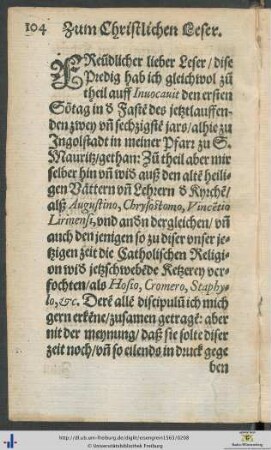 104 Zum Christlichen Leser.
FReüdlicher lieber Leser / dise
Predig hab ich gleichwol zů
theil auff Inuocauit den ersten
Sōtag in d̕ Fastē des jetztlauffen-
den zwey vn̄ sechzigstē jars / alhie zu
Ingolstadt in meiner Pfarz zu S.
Mauritz / gethan: Zů theil aber mir
selber hin vn̄ wid̕ auß den altē heili-
gen Vättern vn̄ Lehrern d̕ Kyrchē /
alß Augustino, Chrysostomo, Vincētio
Lirinensi, vnd and̕n dergleichen / vn̄
auch den jenigen so zu diser vnser je-
tzigen zeit die Catholischen Religi-
on wid̕ jetzschwebēde Ketzerey ver-
fochten / als Hosio, Cromero, Staphy-
lo, &c. Derē allē discipulū ich mich
gern erkēne / zusamen getragē: aber
nit der meynung / daß sie solte diser
zeit noch / vn̄ so eilends in druck gege
ben
http://dl.ub.uni-freiburg.de/diglit/eisengrein1565/0208
© Universitätsbibliothek Freiburg